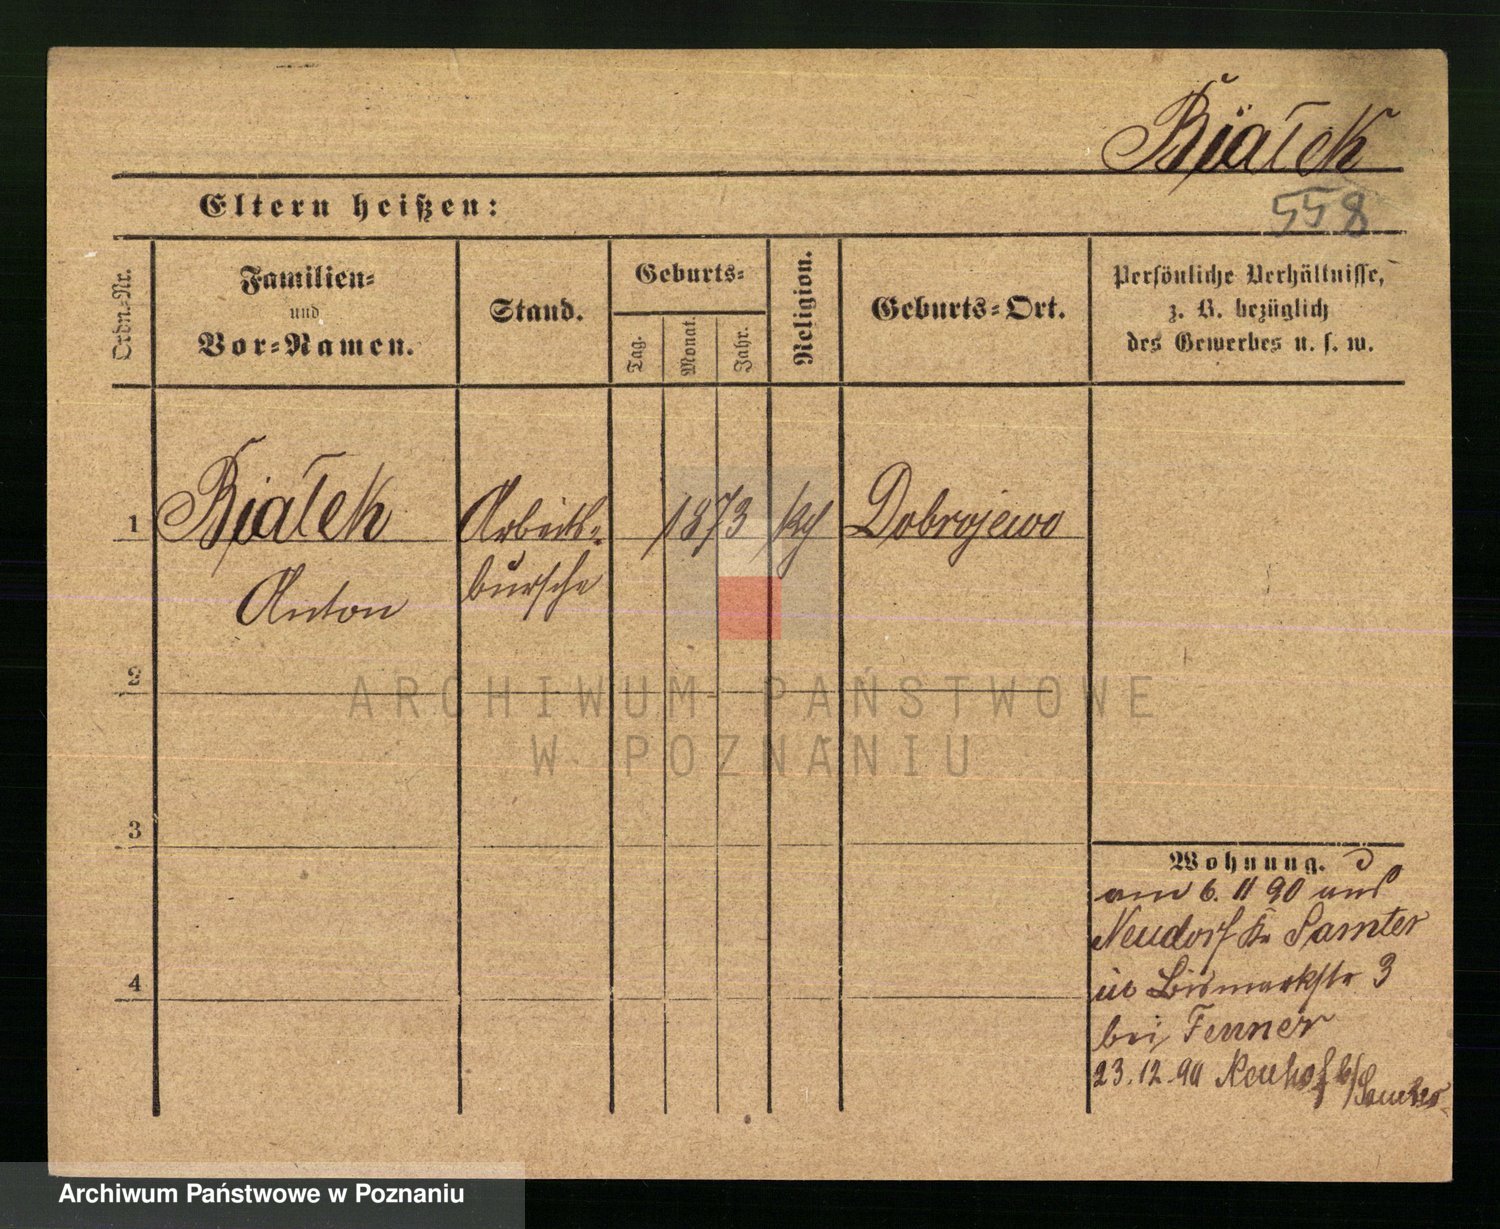 Białek
Eltern heißen:
558
Ordn.-Nr.
Familien-
und
Vor-Namen.
Stand.
Geburts-
Tag.
Monat.
Jahr.
Religion.
Geburts-Ort.
Persönliche Verhältnisse,
z. B. bezüglich
des Gewerbes u. s. w.
1
Białek
Arbeits-
1873
Dobrojewo
bursche
Anton
2
ARCHIWUM PAŃSTWOWE
W POZNANIU
3
Wohnung.
am 6. 11 90 aus
Neudorf Kr Samter
4
in Bismarkstr 3
bei Fenner
23.12.90 Neuhof b/Samter
Archiwum Państwowe w Poznaniu